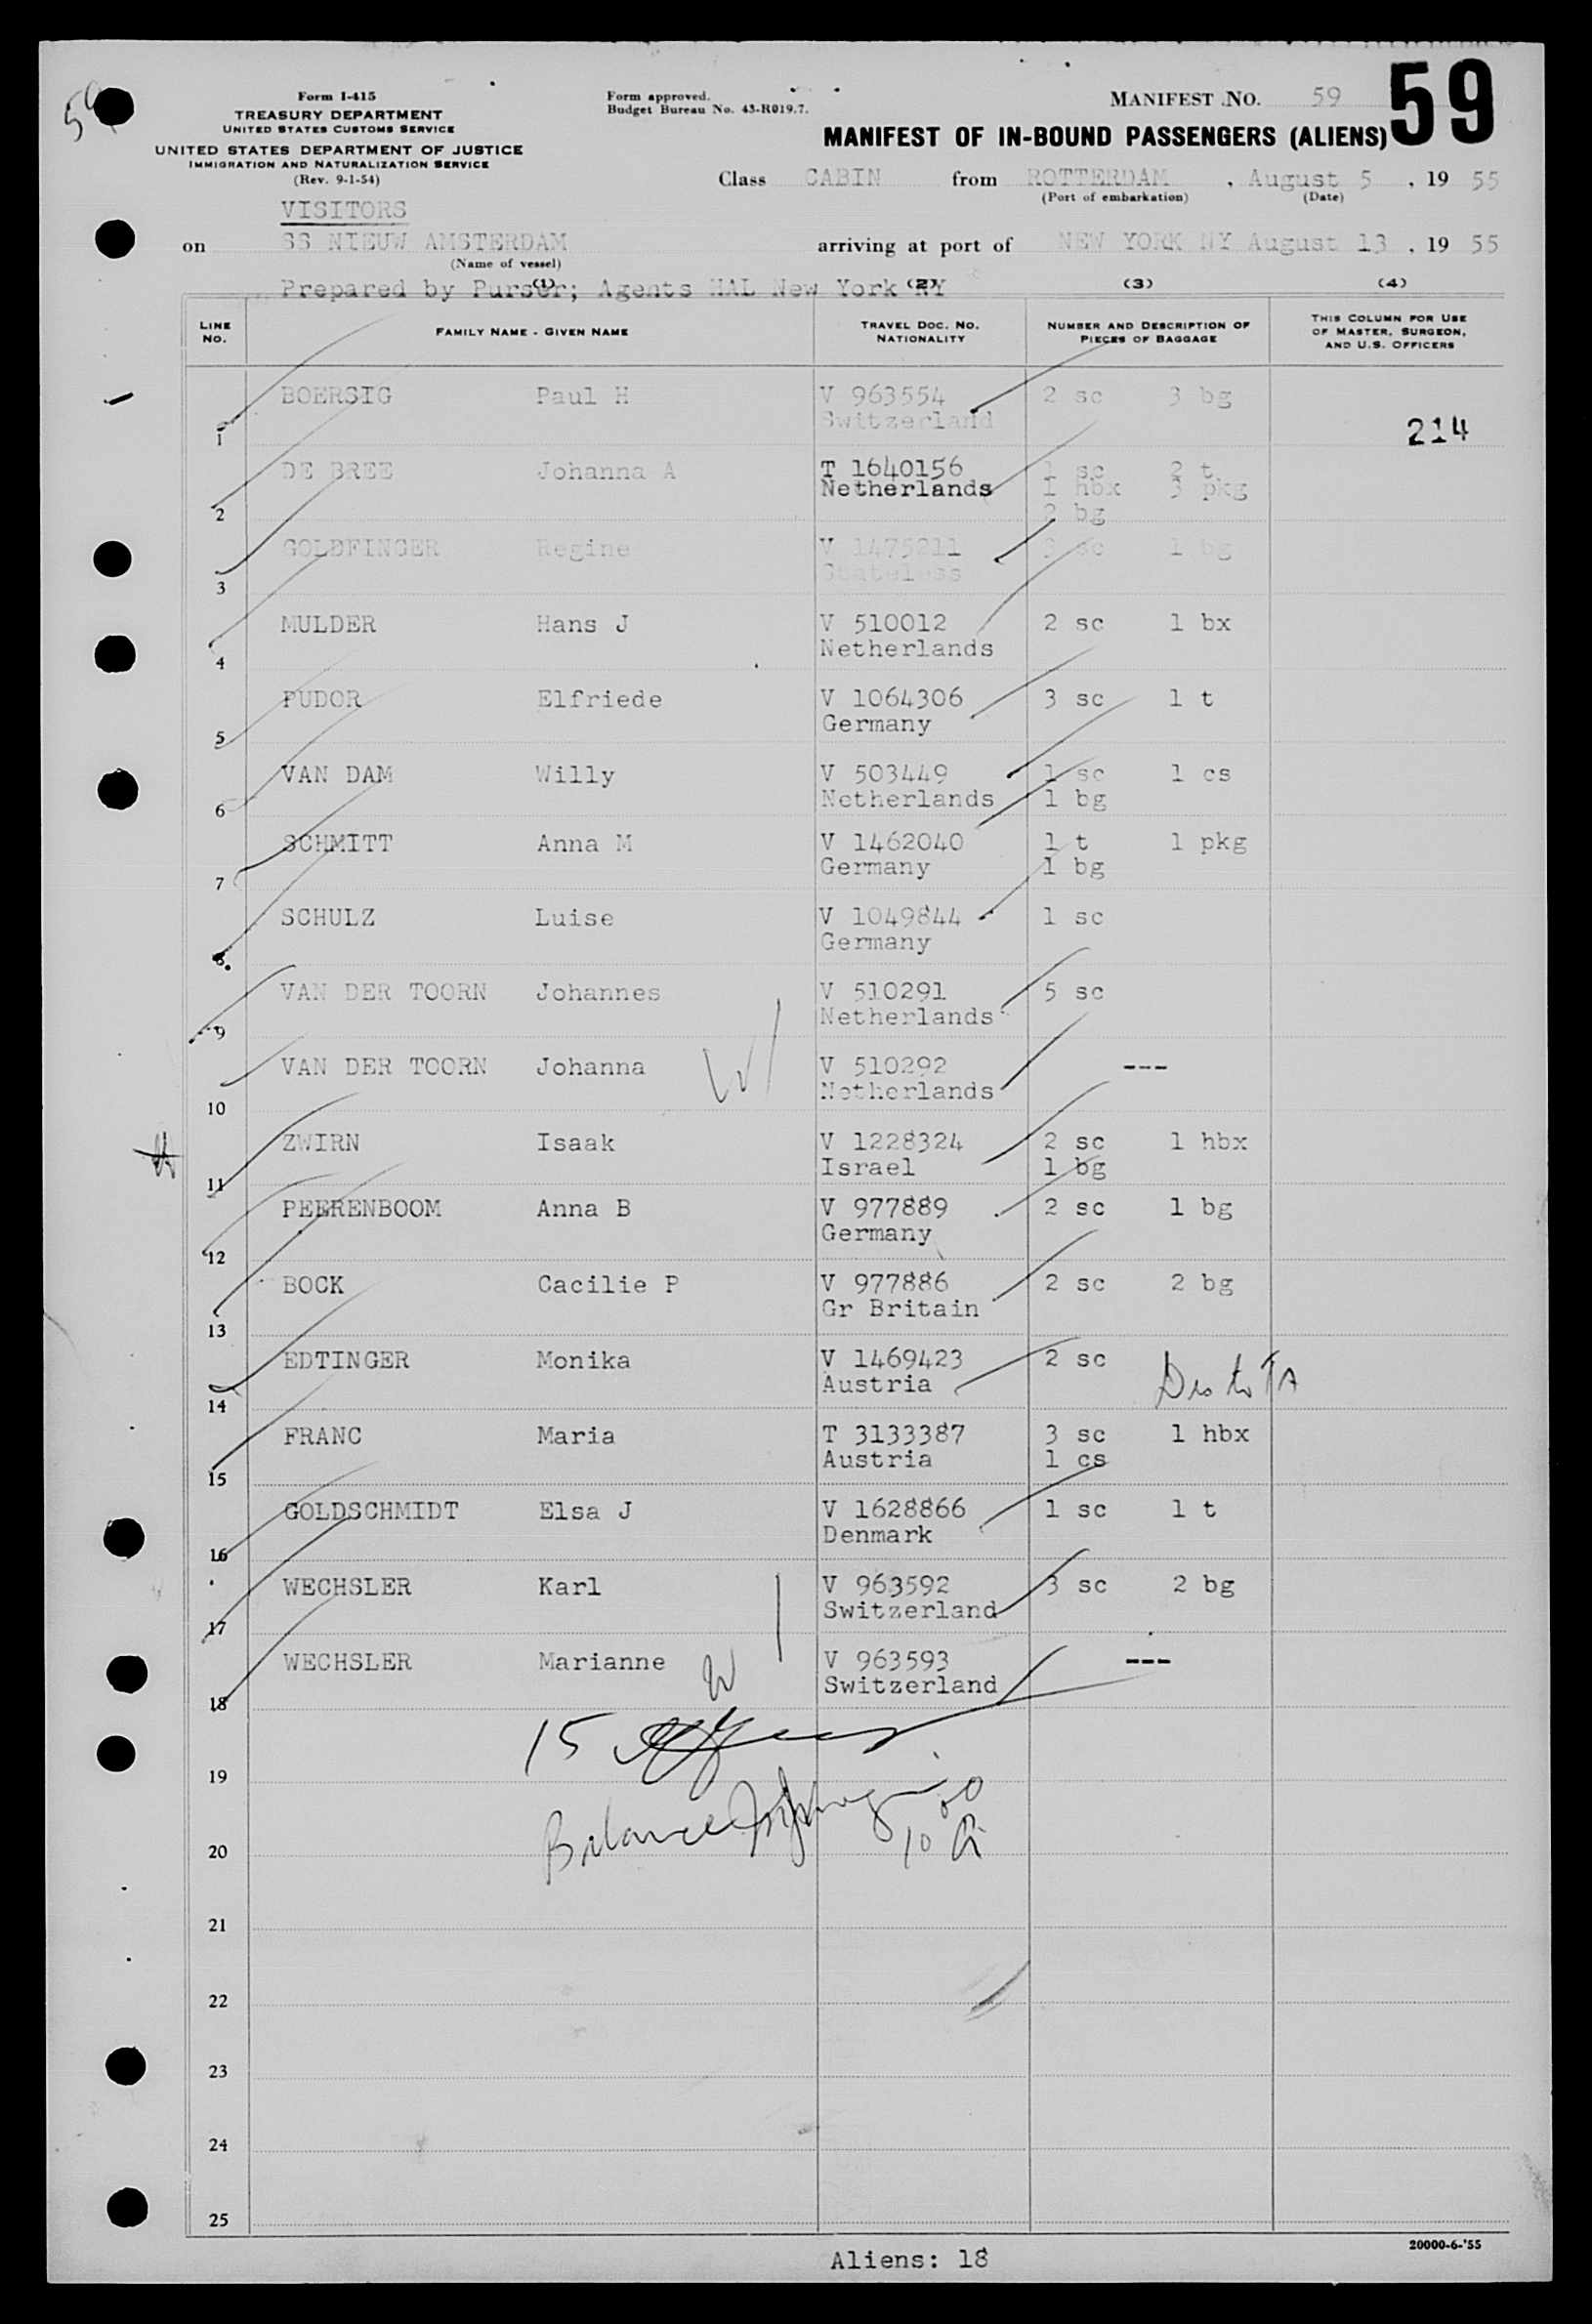 59
Form I-415
TREASURY DEPARTMENT
UNITED STATES CUSTOMS SERVICE
UNITED STATES DEPARTMENT OF JUSTICE
IMMIGRATION AND NATURALIZATION SERVICE
(Rev. 9-1-54)
Form approved.
Budget Bureau No. 43-R019.7.
MANIFEST NO. 59
59
MANIFEST OF IN-BOUND PASSENGERS (ALIENS)
Class CABIN from ROTTERDAM, August 5, 19 55
(Port of embarkation) (Date)
VISITORS
on SS NIEUW AMSTERDAM arriving at port of NEW YORK NY August 13, 19 55
(Name of vessel)
Prepared by Purser; Agents HAL New York NY
(1) (2) (3) (4)
LINE NO. FAMILY NAME - GIVEN NAME TRAVEL DOC. NO. NATIONALITY NUMBER AND DESCRIPTION OF PIECES OF BAGGAGE THIS COLUMN FOR USE OF MASTER, SURGEON, AND U.S. OFFICERS
1 BOERSIG Paul H V 963554 2 sc 3 bg
Switzerland
214
2 DE BREE Johanna A T 1640156 1 sc 2 t
Netherlands 1 hbx 3 pkg
2 bg
3 GOLDFINGER Regine V 1475211 3 sc 1 bg
Stateless
4 MULDER Hans J V 510012 2 sc 1 bx
Netherlands
5 PUDOR Elfriede V 1064306 3 sc 1 t
Germany
6 VAN DAM Willy V 503449 1 sc 1 cs
Netherlands 1 bg
7 SCHMITT Anna M V 1462040 1 t 1 pkg
Germany 1 bg
8 SCHULZ Luise V 1049844 1 sc
Germany
9 VAN DER TOORN Johannes V 510291 5 sc
Netherlands
10 VAN DER TOORN Johanna V 510292 ---
Netherlands
W
11 ZWIRN Isaak V 1228324 2 sc 1 hbx
Israel 1 bg
12 PEERENBOOM Anna B V 977889 2 sc 1 bg
Germany
13 BOCK Cacilie P V 977886 2 sc 2 bg
Gr Britain
14 EDTINGER Monika V 1469423 2 sc
Austria
15 FRANC Maria T 3133387 3 sc 1 hbx
Austria 1 cs
16 GOLDSCHMIDT Elsa J V 1628866 1 sc 1 t
Denmark
17 WECHSLER Karl V 963592 3 sc 2 bg
Switzerland
18 WECHSLER Marianne W V 963593 ---
Switzerland
15
19
Balance
10
20
21
22
23
24
25
20000-6-'55
Aliens: 18